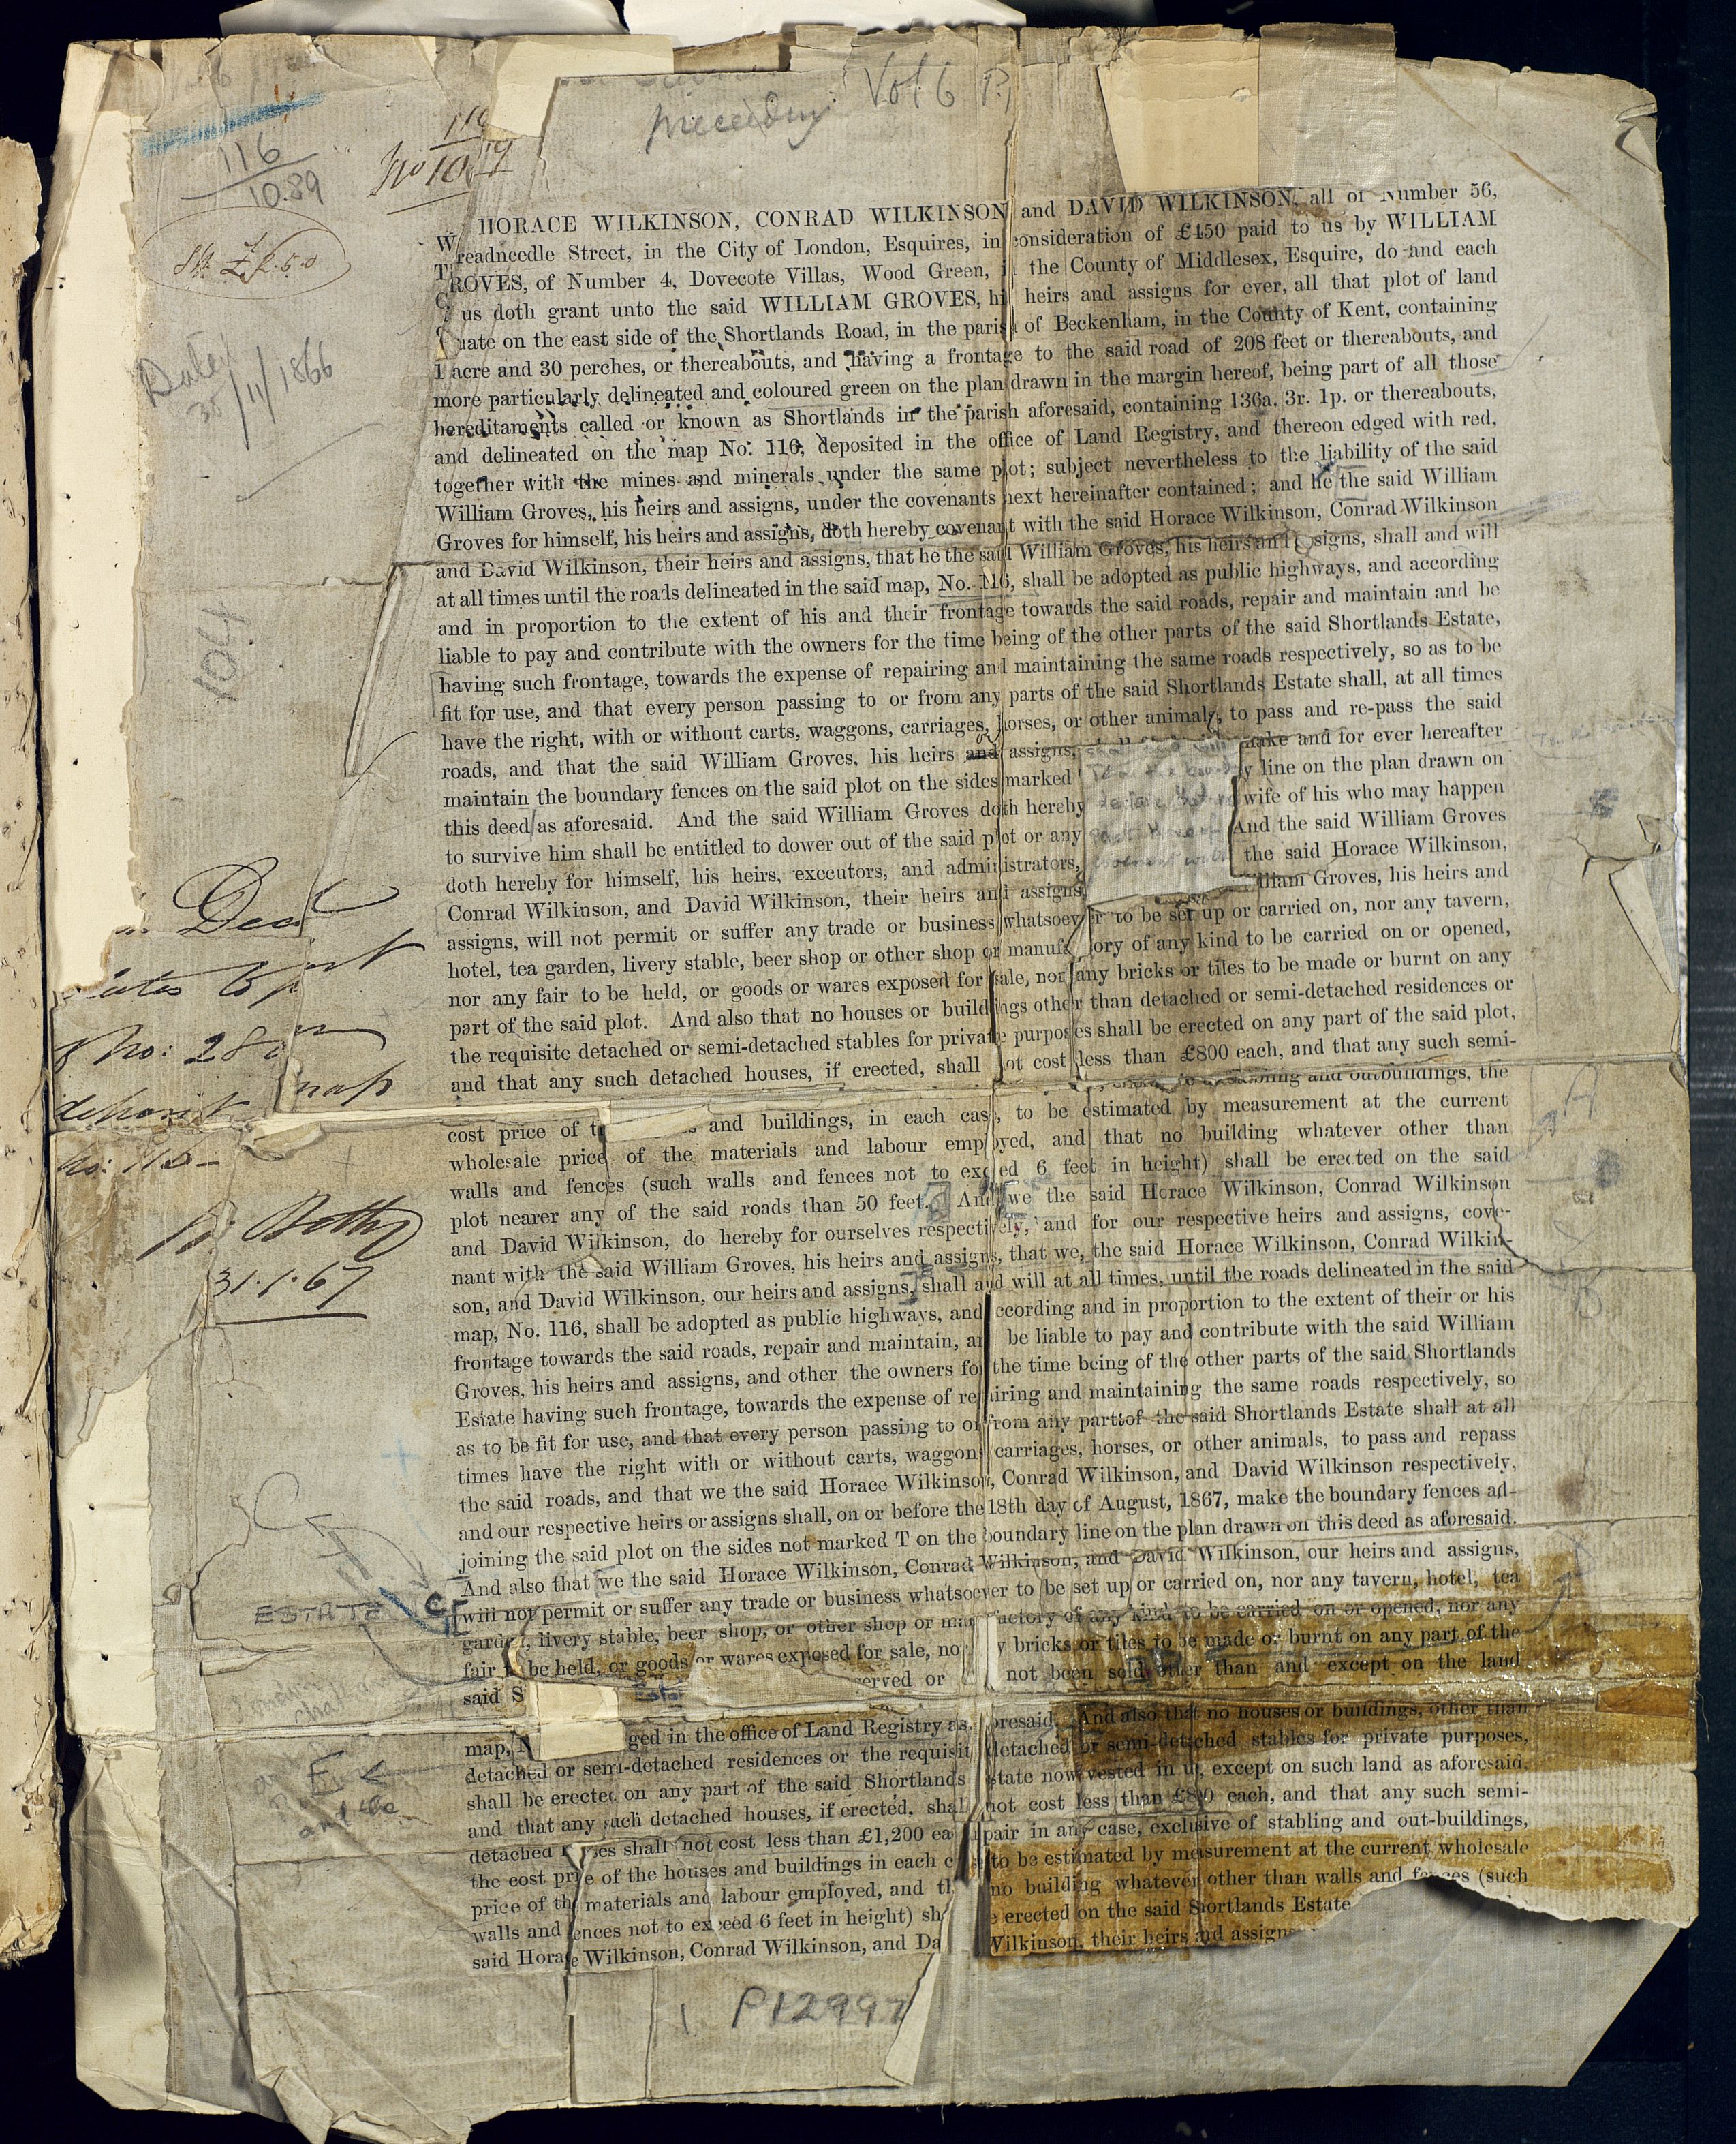 Vol 6 P.
preceding
116
10.89
No 10
Dated
30/11/1866
104
HORACE WILKINSON, CONRAD WILKINSON and DAVID WILKINSON, all of Number 56,
readneedle Street, in the City of London, Esquires, in consideration of £450 paid to us by WILLIAM
ROVES, of Number 4, Dovecote Villas, Wood Green, in the County of Middlesex, Esquire, do and each
us doth grant unto the said WILLIAM GROVES, his heirs and assigns for ever, all that plot of land
uate on the east side of the Shortlands Road, in the parish of Beckenham, in the County of Kent, containing
1 acre and 30 perches, or thereabouts, and having a frontage to the said road of 208 feet or thereabouts, and
more particularly delineated and coloured green on the plan drawn in the margin hereof, being part of all those
hereditaments called or known as Shortlands in the parish aforesaid, containing 136a. 3r. 1p. or thereabouts,
and delineated on the map No. 116, deposited in the office of Land Registry, and thereon edged with red,
together with the mines and minerals under the same plot; subject nevertheless to the liability of the said
William Groves, his heirs and assigns, under the covenants next hereinafter contained; and he the said William
Groves for himself, his heirs and assigns, doth hereby covenant with the said Horace Wilkinson, Conrad Wilkinson
and David Wilkinson, their heirs and assigns, that he the said William Groves, his heirs and signs, shall and will
at all times until the roads delineated in the said map, No. 116, shall be adopted as public highways, and according
and in proportion to the extent of his and their frontage towards the said roads, repair and maintain and be
liable to pay and contribute with the owners for the time being of the other parts of the said Shortlands Estate,
having such frontage, towards the expense of repairing and maintaining the same roads respectively, so as to be
fit for use, and that every person passing to or from any parts of the said Shortlands Estate shall, at all times
have the right, with or without carts, waggons, carriages, horses, or other animals, to pass and re-pass the said
roads, and that the said William Groves, his heirs and assigns, make and for ever hereafter
maintain the boundary fences on the said plot on the sides marked y line on the plan drawn on
this deed as aforesaid. And the said William Groves doth hereby wife of his who may happen
to survive him shall be entitled to dower out of the said plot or any And the said William Groves
doth hereby for himself, his heirs, executors, and administrators, the said Horace Wilkinson,
Conrad Wilkinson, and David Wilkinson, their heirs and assigns, illiam Groves, his heirs and
assigns, will not permit or suffer any trade or business whatsoever to be set up or carried on, nor any tavern,
hotel, tea garden, livery stable, beer shop or other shop or manufa ory of any kind to be carried on or opened,
nor any fair to be held, or goods or wares exposed for sale, nor any bricks or tiles to be made or burnt on any
part of the said plot. And also that no houses or buildings other than detached or semi-detached residences or
the requisite detached or semi-detached stables for private purposes shall be erected on any part of the said plot,
and that any such detached houses, if erected, shall not cost less than £800 each, and that any such semi-
stabling and outbuildings, the
cost price of t s and buildings, in each case, to be estimated by measurement at the current
wholesale price of the materials and labour employed, and that no building whatever other than
walls and fences (such walls and fences not to exceed 6 feet in height) shall be erected on the said
plot nearer any of the said roads than 50 feet. And we the said Horace Wilkinson, Conrad Wilkinson
and David Wilkinson, do hereby for ourselves respectively, and for our respective heirs and assigns, cove-
nant with the said William Groves, his heirs and assigns, that we, the said Horace Wilkinson, Conrad Wilkin-
son, and David Wilkinson, our heirs and assigns, shall and will at all times, until the roads delineated in the said
map, No. 116, shall be adopted as public highways, and according and in proportion to the extent of their or his
frontage towards the said roads, repair and maintain, an be liable to pay and contribute with the said William
Groves, his heirs and assigns, and other the owners for the time being of the other parts of the said Shortlands
Estate having such frontage, towards the expense of repairing and maintaining the same roads respectively, so
as to be fit for use, and that every person passing to or from any part of the said Shortlands Estate shall at all
times have the right with or without carts, waggons carriages, horses, or other animals, to pass and repass
the said roads, and that we the said Horace Wilkinson, Conrad Wilkinson, and David Wilkinson respectively,
and our respective heirs or assigns shall, on or before the 18th day of August, 1867, make the boundary fences ad-
joining the said plot on the sides not marked T on the boundary line on the plan drawn on this deed as aforesaid.
And also that we the said Horace Wilkinson, Conrad Wilkinson, and David Wilkinson, our heirs and assigns,
will not permit or suffer any trade or business whatsoever to be set up or carried on, nor any tavern, hotel, tea
garden, livery stable, beer shop, or other shop or manufactory of any kind to be carried on or opened, nor any
fair to be held, or goods or wares exposed for sale, no y bricks or tiles to be made or burnt on any part of the
said S erved or not been sold other than and except on the land
map, N ged in the office of Land Registry as oresaid. And also that no houses or buildings, other than
detached or semi-detached residences or the requisit detached or semi-detached stables for private purposes,
shall be erected on any part of the said Shortlands state now vested in us, except on such land as aforesaid,
and that any such detached houses, if erected, shall not cost less than £800 each, and that any such semi-
detached houses shall not cost less than £1,200 ea pair in any case, exclusive of stabling and out-buildings,
the cost price of the houses and buildings in each case to be estimated by measurement at the current wholesale
price of the materials and labour employed, and th no building whatever other than walls and fences (such
walls and fences not to exceed 6 feet in height) sh e erected on the said Shortlands Estate
said Horace Wilkinson, Conrad Wilkinson, and Da Wilkinson, their heirs and assigns
Deed
No: 28
map
deposit
No: 116
31.1.67
ESTATE
E
and the
P12997